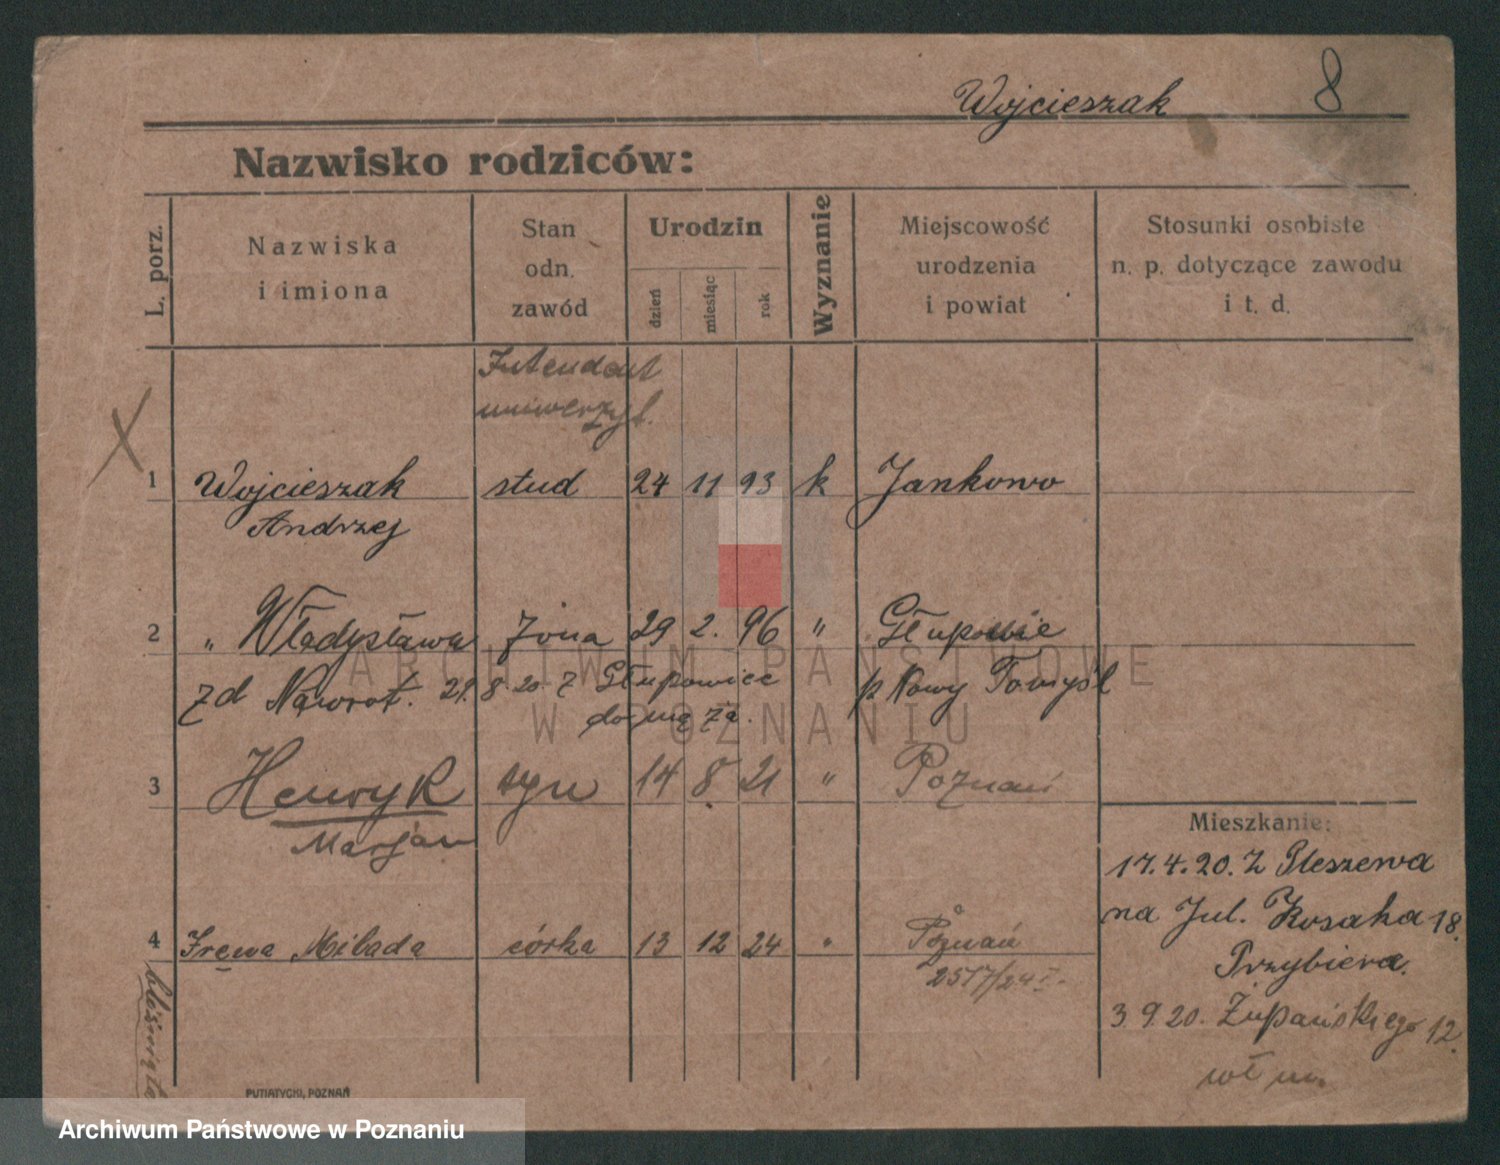 Wojcieszak 8
Nazwisko rodziców:
L. porz.
Nazwiska
i imiona
Stan
odn.
zawód
Urodzin
dzień
miesiąc
rok
Wyznanie
Miejscowość
urodzenia
i powiat
Stosunki osobiste
n. p. dotyczące zawodu
i t. d.
Intendent
uniwerzyt.
X
1 Wojcieszak stud 24 11 93 k Jankowo
Andrzej
2 „ Władysława żona 29 2. 96 " Głuponie
zd Nawrot. 29. 8. 20. z Głupowiec p Nowy Tomyśl
do męża.
3 Henryk syn 14 8 21 " Poznań
Marjan
4 Irena córka 13 12 24 " Poznań
2517/24 I.
bliźnięta
Mieszkanie:
17.4.20. z Pleszewa
na Jul. Kosaka 18.
Przybiera.
3 9 20. Żupańskiego 12.
wł m.
PUTIATYCKI, POZNAŃ
ARCHIWUM PAŃSTWOWE
W POZNANIU
Archiwum Państwowe w Poznaniu